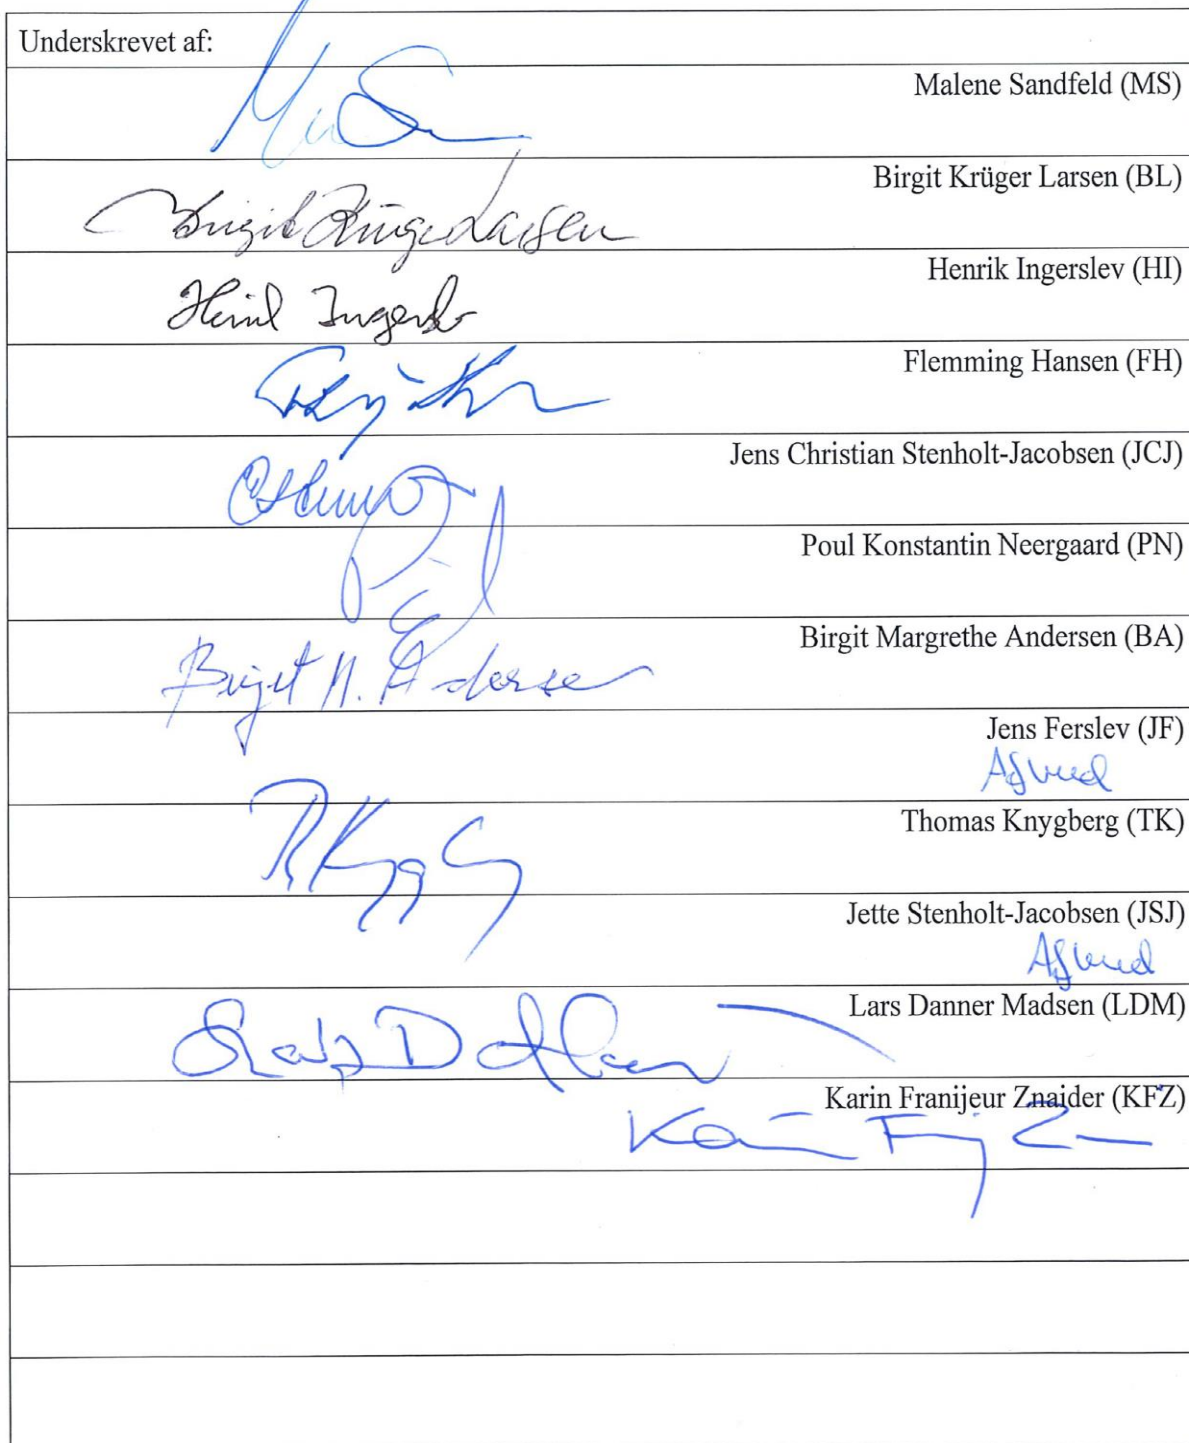 Underskrevet af:
Malene Sandfeld (MS)
Birgit Krüger Larsen (BL)
Birgit Krüger Larsen
Henrik Ingerslev (HI)
Henrik Ingerslev
Flemming Hansen (FH)
Jens Christian Stenholt-Jacobsen (JCJ)
Poul Konstantin Neergaard (PN)
Birgit Margrethe Andersen (BA)
Birgit M. Andersen
Jens Ferslev (JF)
Afbud
Thomas Knygberg (TK)
Jette Stenholt-Jacobsen (JSJ)
Afbud
Lars Danner Madsen (LDM)
Karin Franijeur Znaider (KFZ)